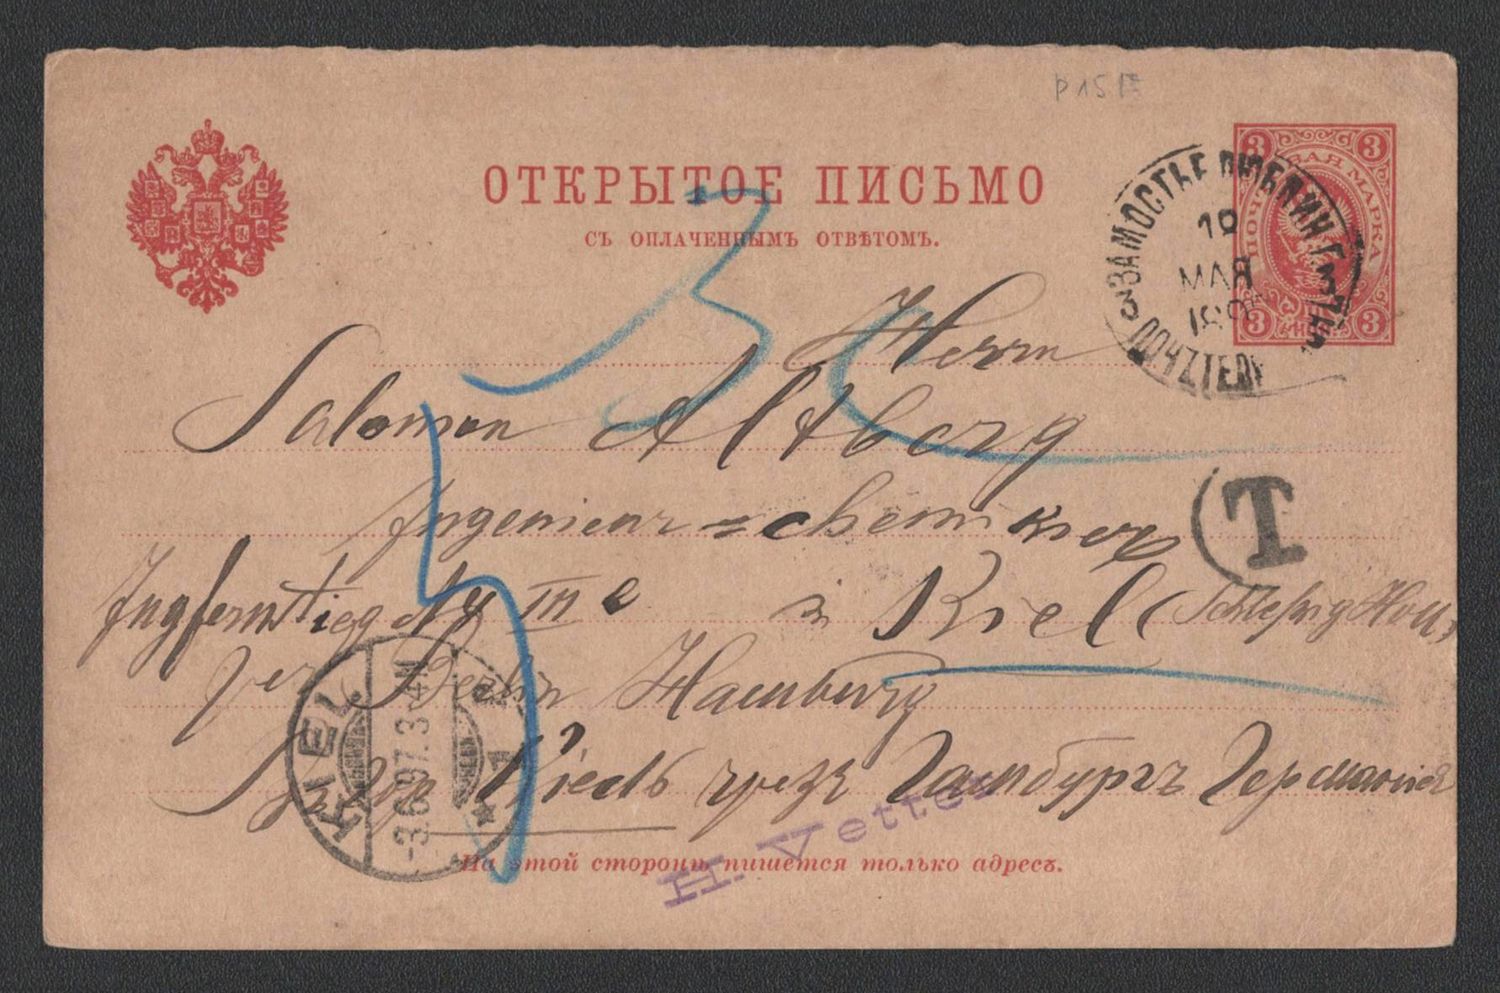 P 15 F
ОТКРЫТОЕ ПИСЬМО
СЪ ОПЛАЧЕННЫМЪ ОТВѢТОМЪ.
3 3
ПОЧТОВАЯ МАРКА
3 3
ЗАМОСТЬЕ ЛЮБЛИН. Г.
19
МАЯ
189
ПОЧ. ТЕЛ.
3
Herrn
Salomon Altberg
Ingenieur = chemiker
T
Jungfernstieg III
Kiel (Schleswig Hols
per Berlin Hamburg
Киль чрезъ Гамбургъ Германия
KIEL
-3.6.97. 3-4N
H. Vetter
На этой сторонѣ пишется только адресъ.
30
5